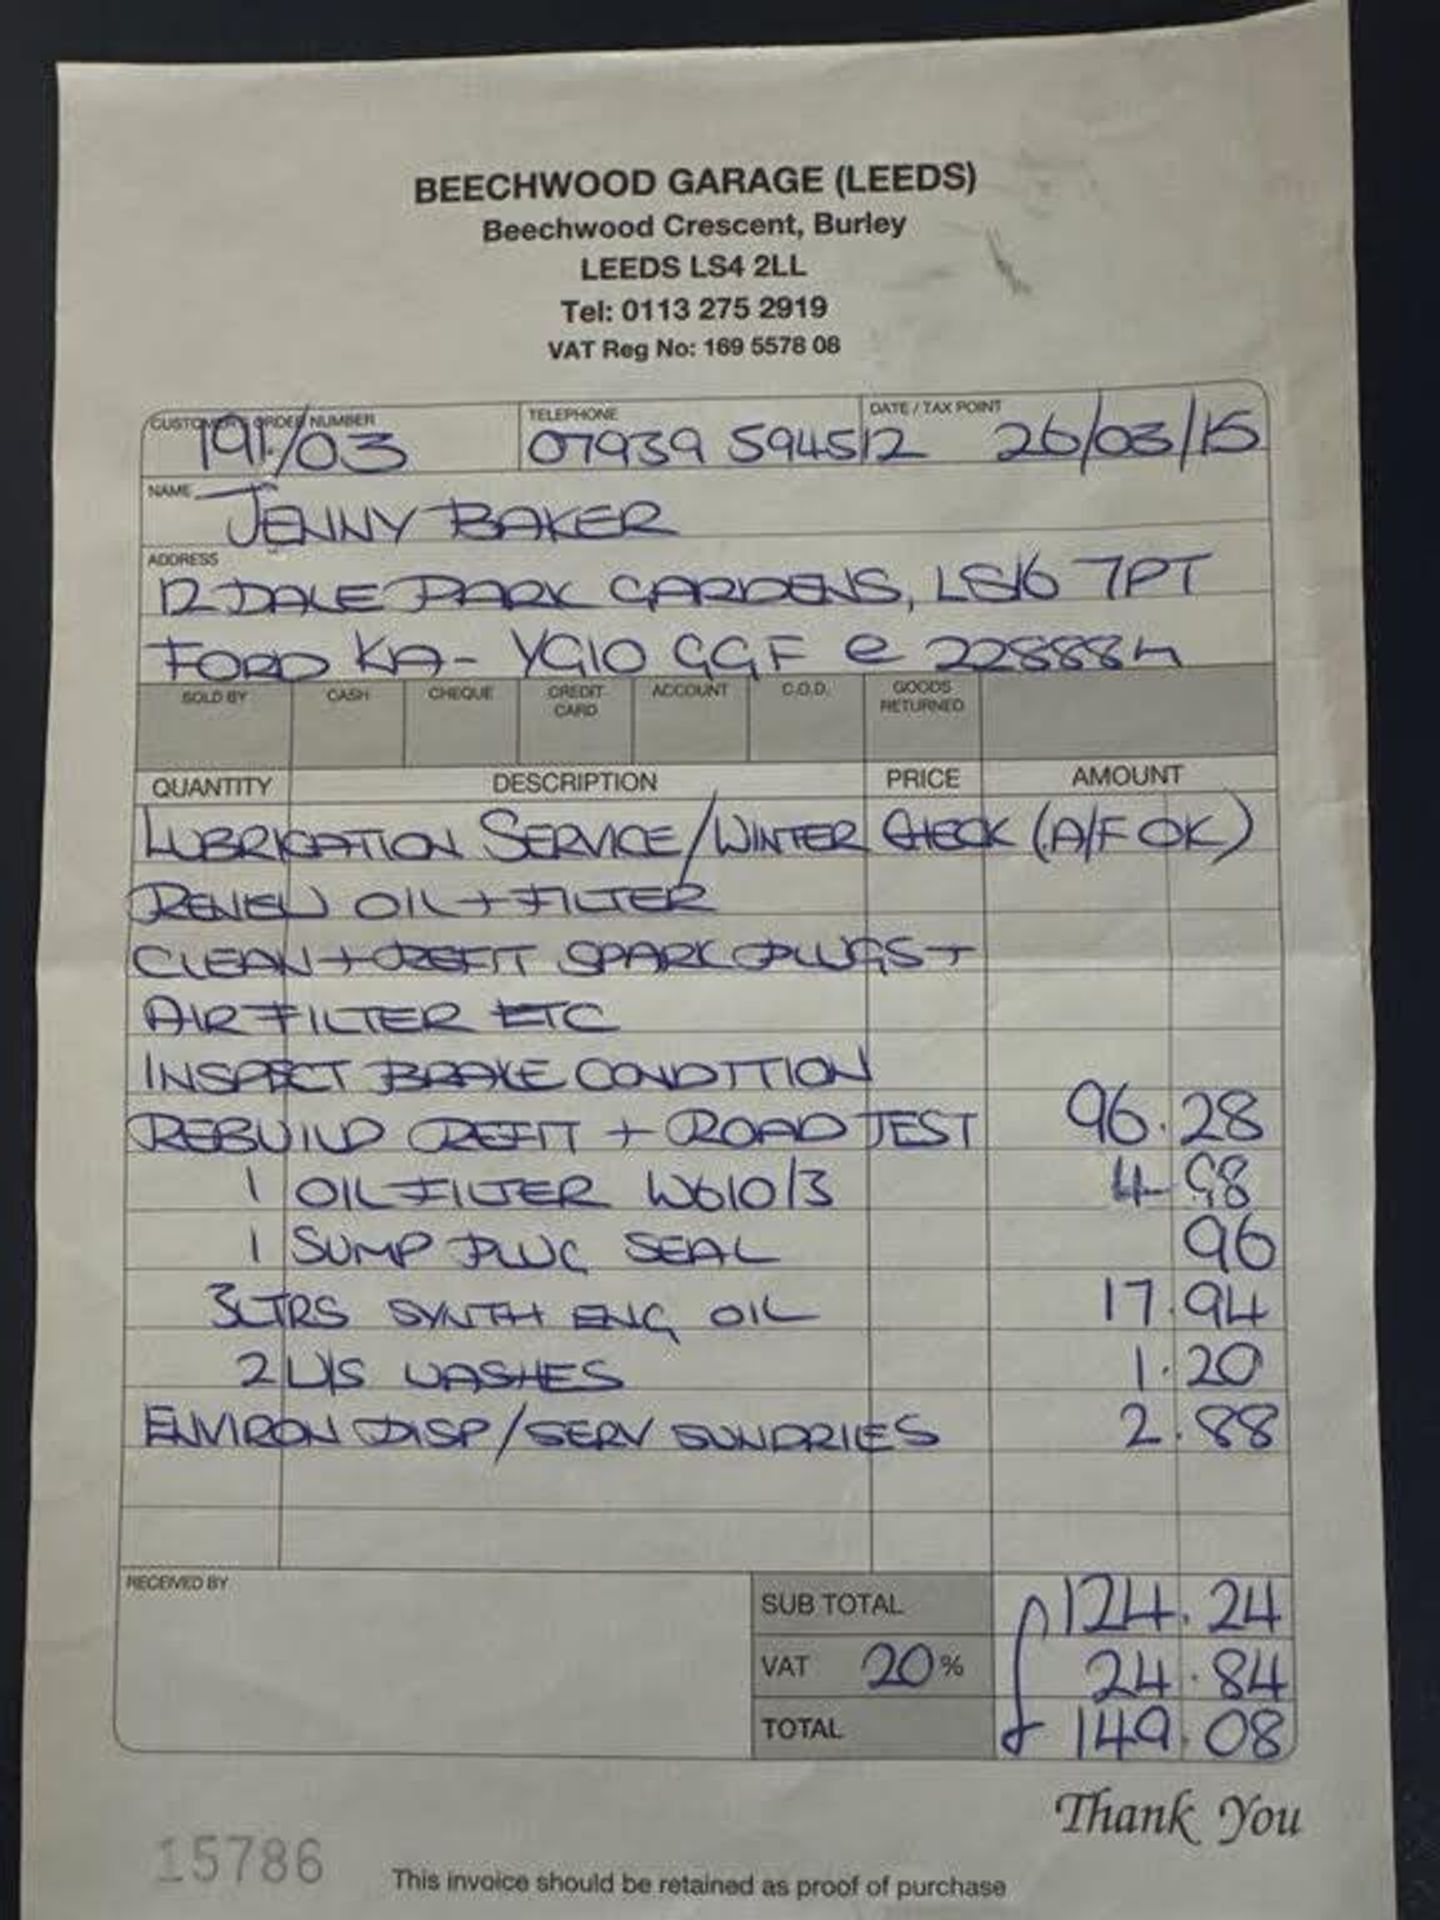 BEECHWOOD GARAGE (LEEDS)
Beechwood Crescent, Burley
LEEDS LS4 2LL
Tel: 0113 275 2919
VAT Reg No: 169 5578 08
CUSTOMER'S ORDER NUMBER TELEPHONE DATE / TAX POINT
191/03 07939 594512 26/03/15
NAME JENNY BAKER
ADDRESS
12 DALE PARK GARDENS, LS16 7PT
FORD KA - YG10 GGF @ 22888M
SOLD BY CASH CHEQUE CREDIT CARD ACCOUNT C.O.D. GOODS RETURNED
QUANTITY DESCRIPTION PRICE AMOUNT
LUBRICATION SERVICE/WINTER CHECK (A/F OK)
RENEW OIL + FILTER
CLEAN + REFIT SPARK PLUGS +
AIR FILTER ETC
INSPECT BRAKE CONDITION
REBUILD REFIT + ROAD TEST 96.28
1 OIL FILTER W610/3 4.98
1 SUMP PLUG SEAL 96
3LTRS SYNTH ENG OIL 17.94
2 U/S WASHES 1.20
ENVIRON DISP/SERV SUNDRIES 2.88
RECEIVED BY
SUB TOTAL 124.24
VAT 20 % 24.84
TOTAL 149.08
Thank You
15786
This invoice should be retained as proof of purchase